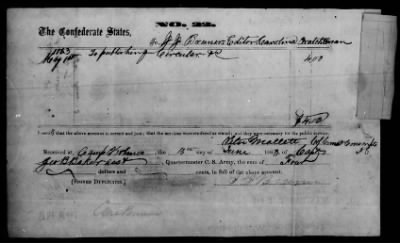 No. 22.
The Confederate States,
To J J Bruner Editor Carolina Watchman
1863
May 1st To publishing Circular &c 4 00
$ 4 00
I certify that the above account is correct and just; that the services were rendered as stated, and they were necessary for the public service.
Peter Mallett
Received at Camp Holmes the of June 1863, of Capt
Geo B Baker , Quartermaster C. S. Army, the sum of Four
dollars and cents, in full of the above account.
[SIGNED DUPLICATES.]